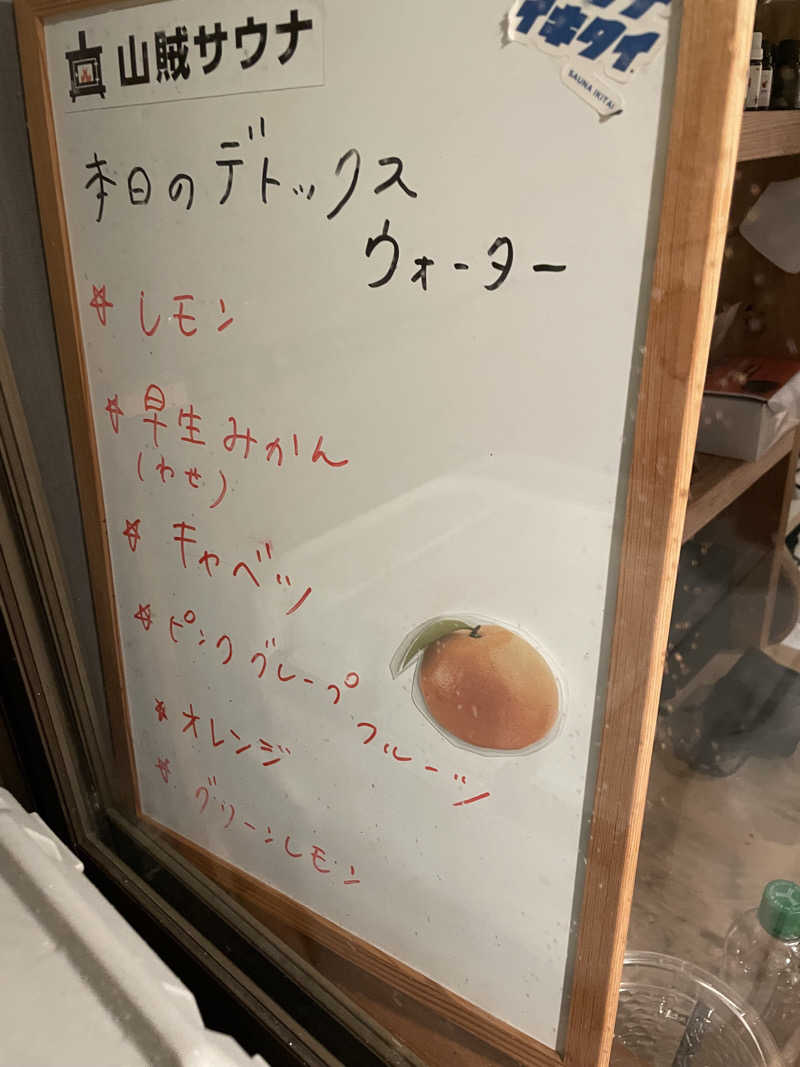 山賊サウナ
イキタイ
SAUNA IKITAI
本日のデトックス
ウォーター
☆ レモン
☆ 早生みかん
(わせ)
☆ キャベツ
☆ ピンクグレープ
フルーツ
☆ オレンジ
☆ グリーンレモン